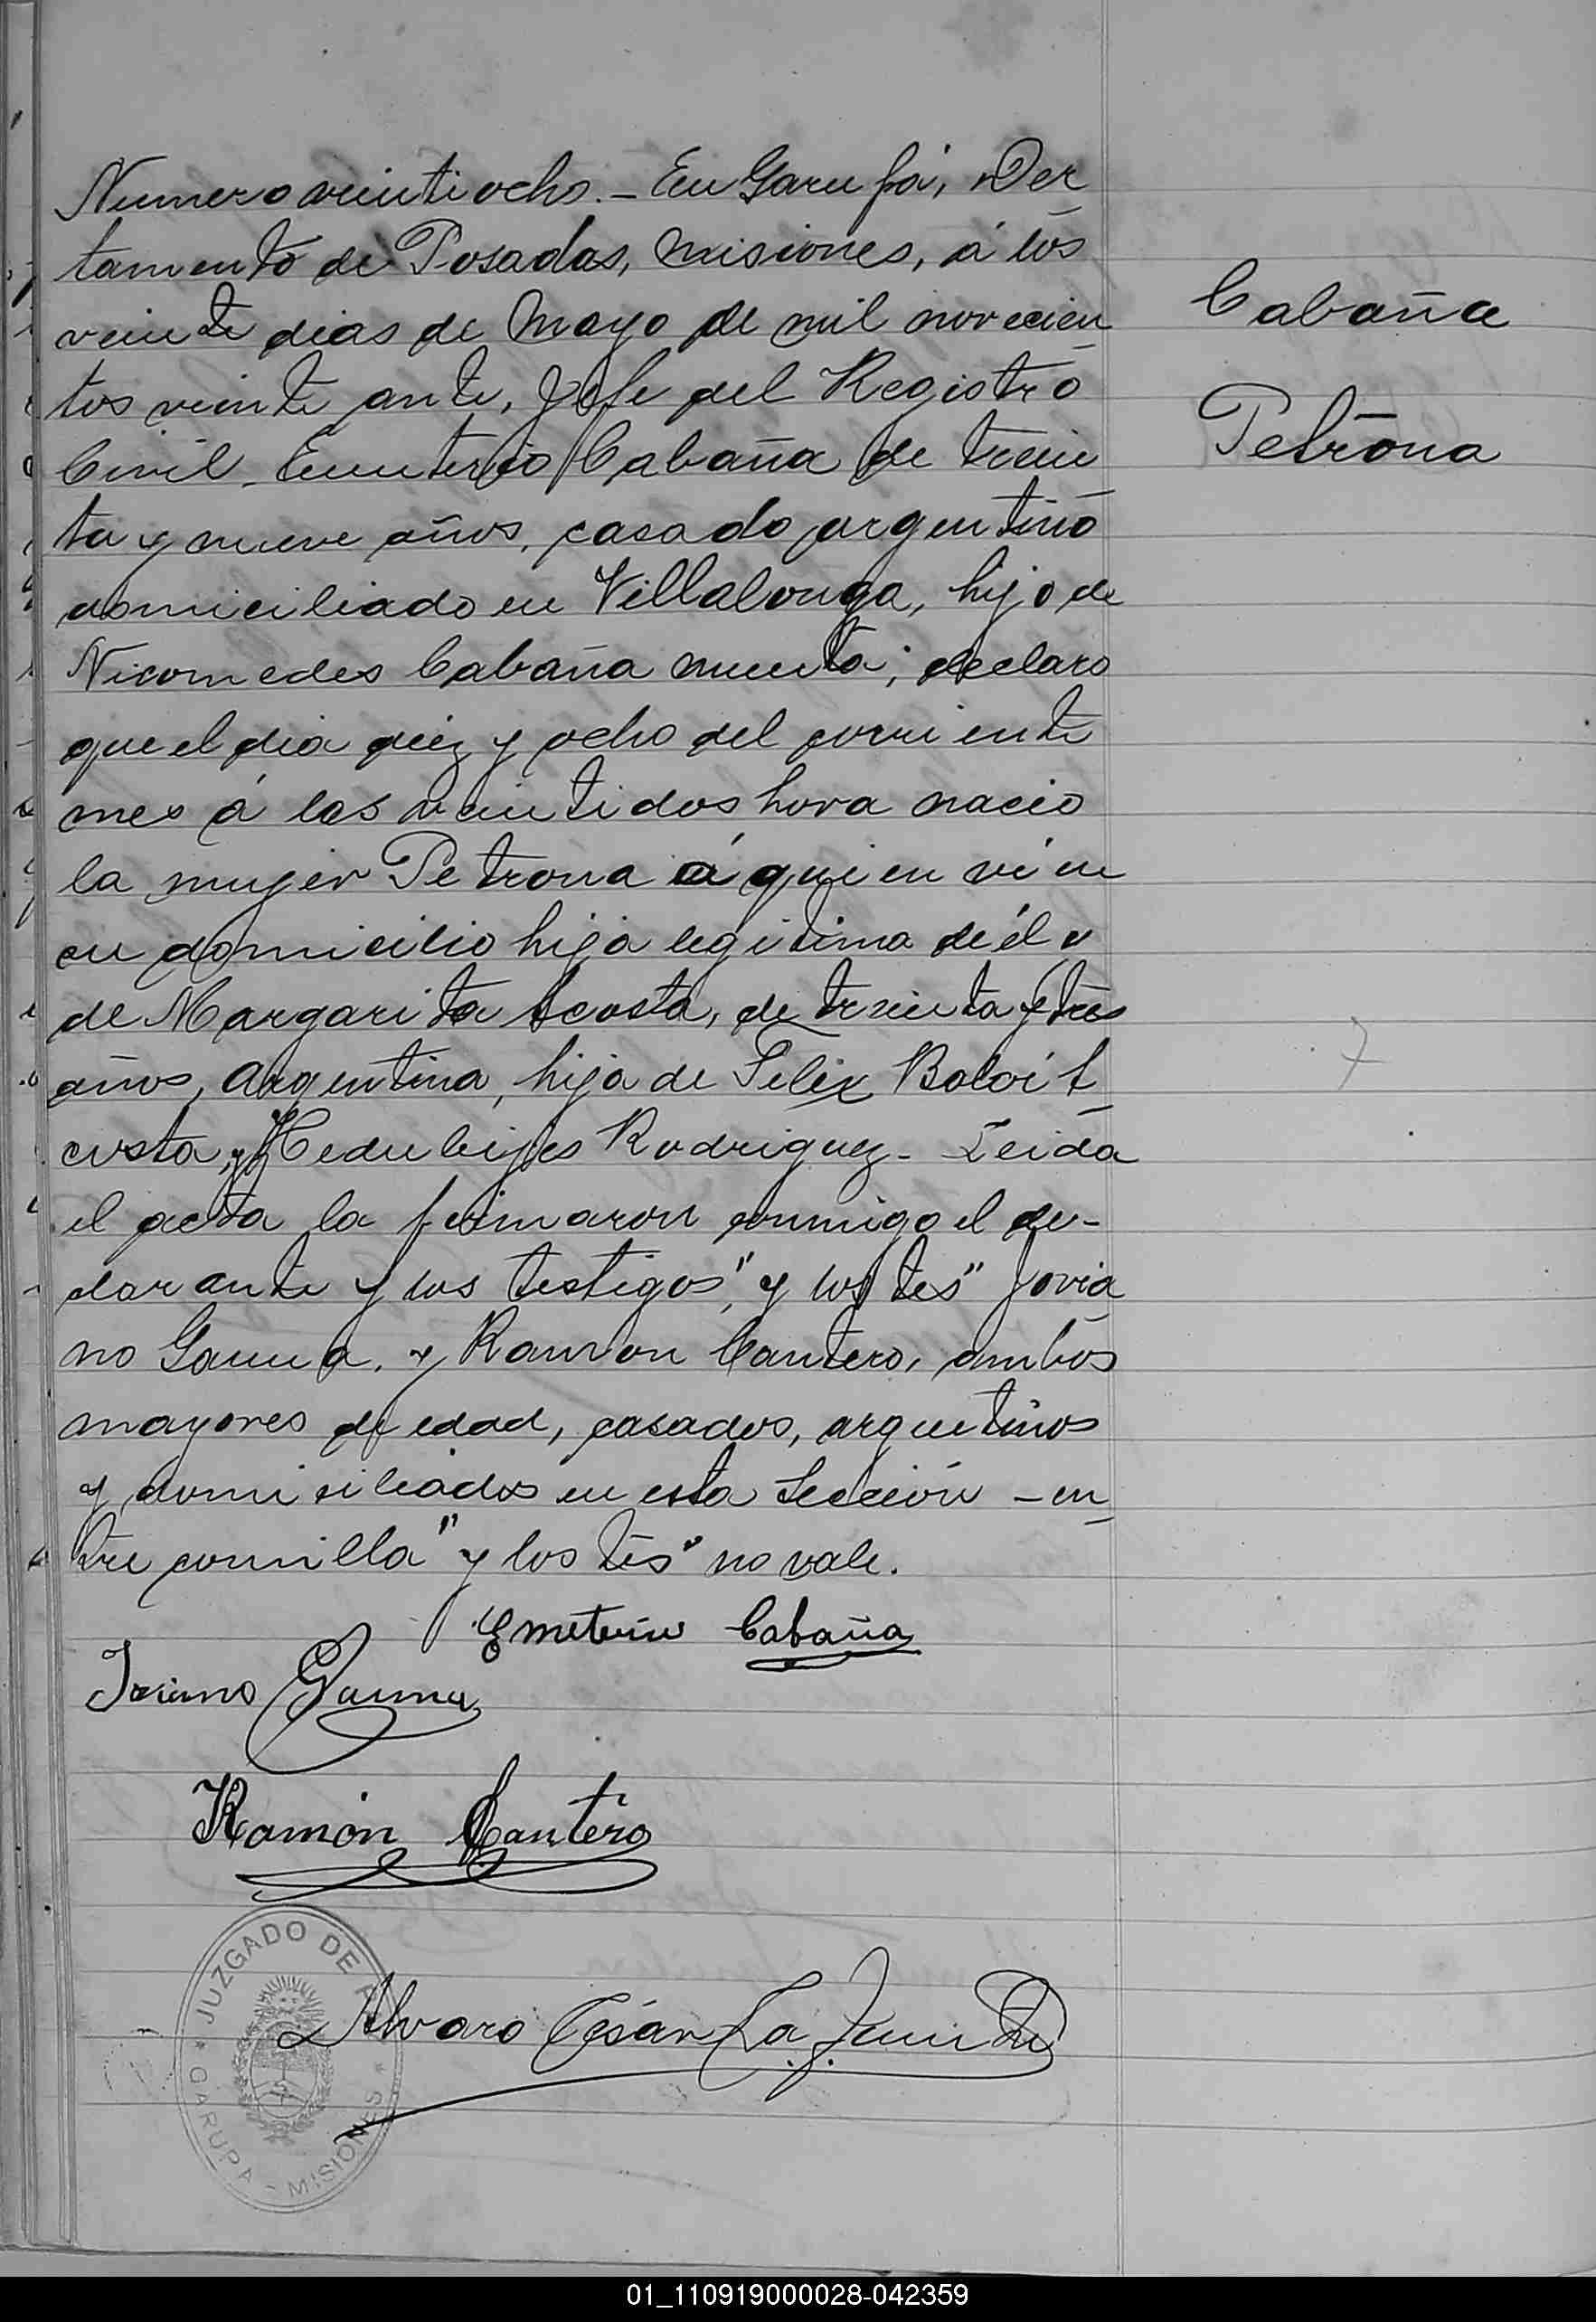 Numero veintiocho. - En Garupá, Der
tamento de Posadas, Misiones, á los
veinte dias de Mayo de mil novecien
tos veinte ante, Jefe del Registro
Civil, Emeterio Cabaña de trein
ta y nueve años, casado argentino
domiciliado en Villalonga, hijo de
Nicomedes Cabaña muerta; declaro
que el dia diez y ocho del corriente
mes á las veintidos hora nacio
la mujer Petrona á quien vi en
su domicilio hija legitima de él y
de Margarita Acosta, de treinta y tres
años, Argentina, hija de Felix A
costa, y Rodriguez - Leida
el acta la firmaron conmigo el de-
clarante y los testigos "y los tes" Jovia
no Gauna, y Ramon Cantero, ambos
mayores de edad, casados, argentinos
y domiciliados en esta Sección - en
tre comilla "y los tes" no vale.
Cabaña
Petrona
Emeterio Cabaña
Gauna
Ramón Cantero
Alvaro César La
JUZGADO DE
GARUPA - MISIONES
01_110919000028-042359